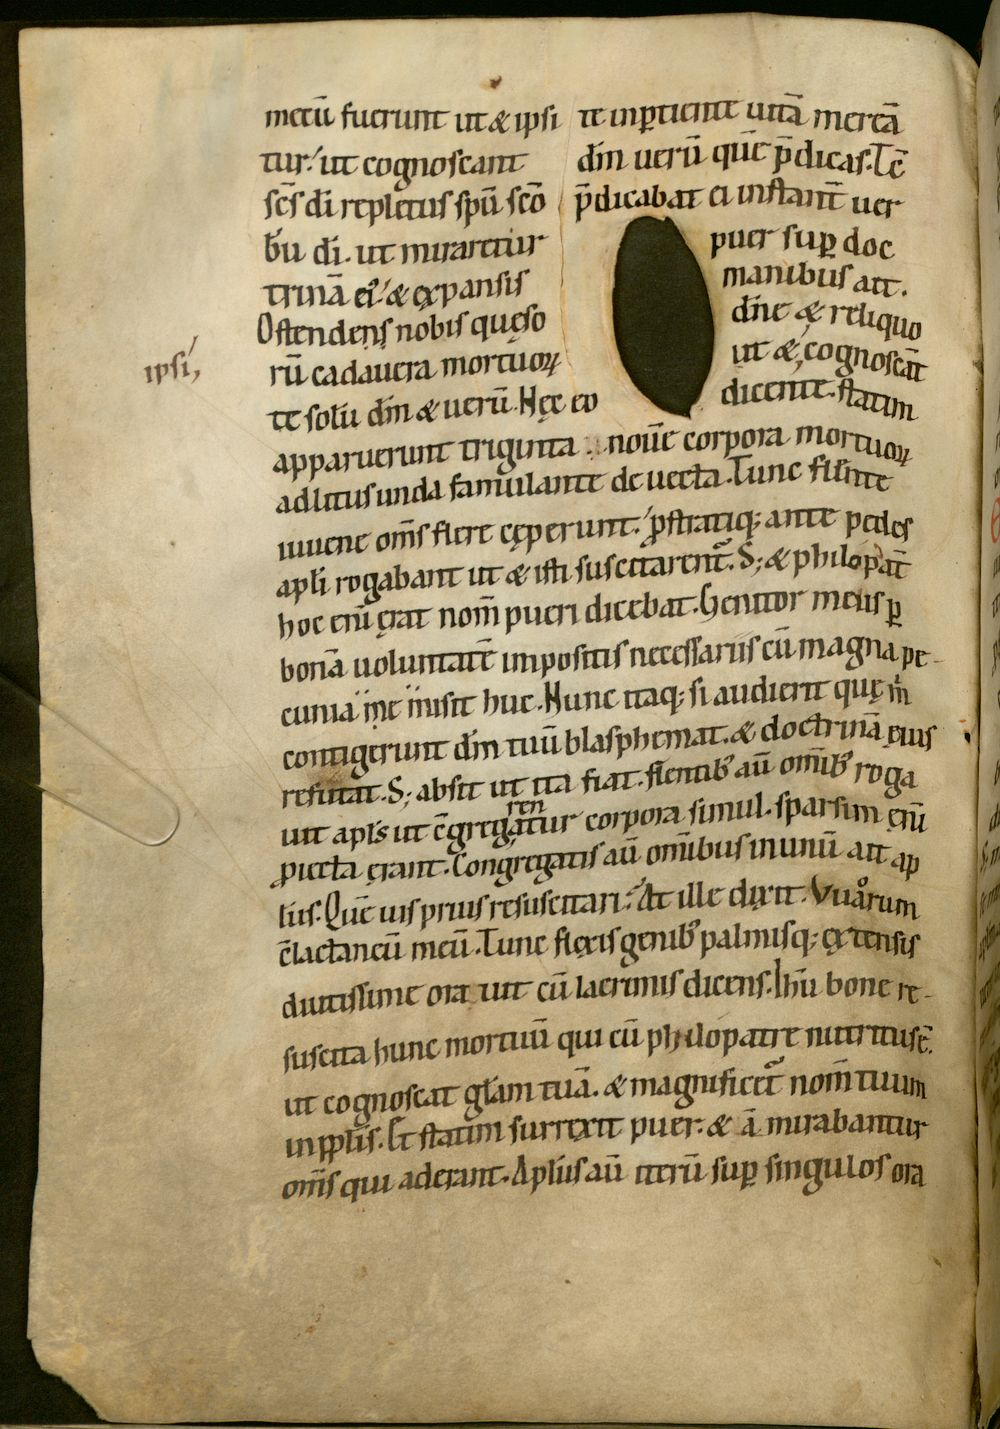 metū fuerunt ut & ipsi te inꝑtiente uitā mereā
tur.' ut cognoscant dm̄ uerū quē p̄dicas. Tc̄
sc̄s dī repletus spū sc̄o p̄dicabat ei instant̄ uer
bū dī. ut miraretur puer suꝑ doc
trinā ei'.' & expansis manibus ait.
Ostendens nobis quęso dn̄e & reliquo
ipsi,
rū cadauera mortuoꝝ ut &, cognoscāt
te solū dm̄ & uerū. Hęc eo dicente. statim
apparuerunt triginta nouē corpora mortuoꝝ
ad litus unda famulante deuecta. Tunc flente
iuuene om̄s flere cęperunt.' ꝓstratiq; ante pedes
apl̄i rogabant ut & isti suscitarent̄. S; & philopat̄
hoc enī erat nom̄ pueri dicebat. Genitor meus ꝑ
bonā uoluntatē impositis necessariis cū magna pe-
cunia me misit huc. Nunc itaq; si audierit quę m̄
contigerunt dm̄ tuū blasphemat. & doctrinā eius
refutat. S; absit ut ita fiat. flentib' aū om̄ib' roga
uit apl̄s ut c̄gregarentur corpora simul. sparsim enī
ꝓiecta erant. Congregatis aū om̄ibus in unū ait ap
l̄ius. Quē uis prius resuscitari.' At ille dixit. Vuarum
c̄lactaneū meū. Tunc flexis genib' palmisq; extensis
diutissime orauit cū lacrimis dicens. Ih̄u bone re-
suscita hunc mortuū qui cū philopatre nutritus ē.
ut cognoscat gl̄am tuā. & magnificet̄ nom̄ tuum
in ppl̄is. Et statim surrexit puer. & ā mirabantur
om̄s qui aderant. Apl̄us aū iterū suꝑ singulos ora